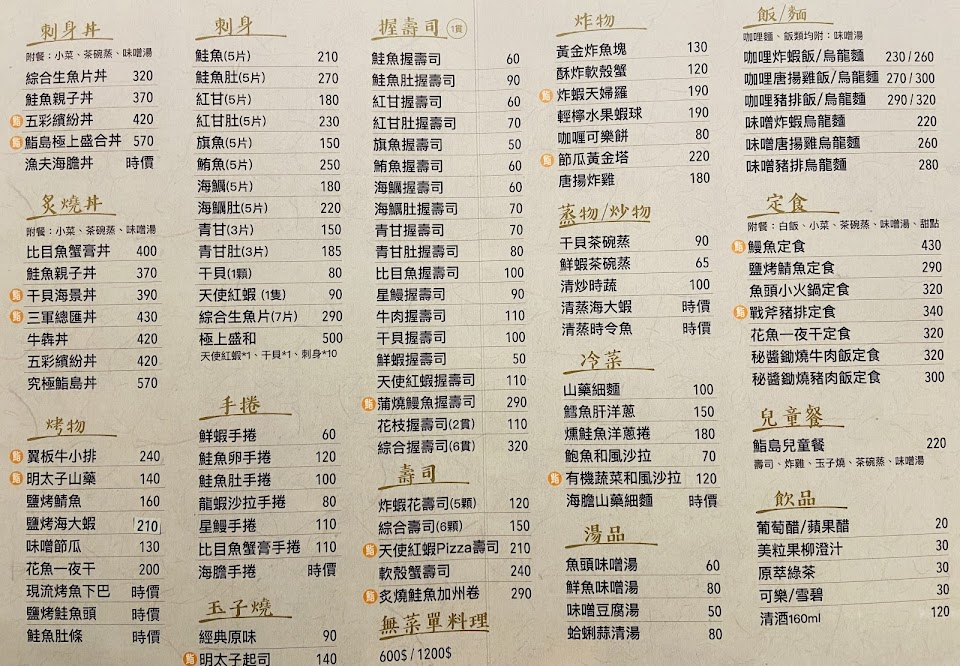 刺身丼
附餐：小菜、茶碗蒸、味噌湯
綜合生魚片丼 320
鮭魚親子丼 370
鮨 五彩繽紛丼 420
鮨 鮨島極上盛合丼 570
漁夫海膽丼 時價
炙燒丼
附餐：小菜、茶碗蒸、味噌湯
比目魚蟹膏丼 400
鮭魚親子丼 370
鮨 干貝海景丼 390
鮨 三軍總匯丼 430
牛犇丼 420
五彩繽紛丼 420
究極鮨島丼 570
烤物
鮨 翼板牛小排 240
鮨 明太子山藥 140
鹽烤鯖魚 160
鹽烤海大蝦 210
味噌節瓜 130
花魚一夜干 200
現流烤魚下巴 時價
鹽烤鮭魚頭 時價
鮭魚肚條 時價
刺身
鮭魚(5片) 210
鮭魚肚(5片) 270
紅甘(5片) 180
紅甘肚(5片) 230
旗魚(5片) 150
鮪魚(5片) 250
海鱺(5片) 180
海鱺肚(5片) 220
青甘(3片) 150
青甘肚(3片) 185
干貝(1顆) 80
天使紅蝦(1隻) 90
綜合生魚片(7片) 290
極上盛和 500
天使紅蝦*1、干貝*1、刺身*10
手捲
鮮蝦手捲 60
鮭魚卵手捲 120
鮭魚肚手捲 100
龍蝦沙拉手捲 80
星鰻手捲 110
比目魚蟹膏手捲 110
海膽手捲 時價
玉子燒
經典原味 90
鮨 明太子起司 140
握壽司 1貫
鮭魚握壽司 60
鮭魚肚握壽司 90
紅甘握壽司 60
紅甘肚握壽司 70
旗魚握壽司 50
鮪魚握壽司 60
海鱺握壽司 60
海鱺肚握壽司 70
青甘握壽司 70
青甘肚握壽司 80
比目魚握壽司 100
星鰻握壽司 90
牛肉握壽司 110
干貝握壽司 100
鮮蝦握壽司 50
天使紅蝦握壽司 110
鮨 蒲燒鰻魚握壽司 290
花枝握壽司(2貫) 110
綜合握壽司(6貫) 320
壽司
炸蝦花壽司(5顆) 120
綜合壽司(6顆) 150
鮨 天使紅蝦Pizza壽司 210
軟殼蟹壽司 240
鮨 炙燒鮭魚加州卷 290
無菜單料理
600$ / 1200$
炸物
黃金炸魚塊 130
酥炸軟殼蟹 120
鮨 炸蝦天婦羅 190
輕檸水果蝦球 190
咖喱可樂餅 80
鮨 節瓜黃金塔 220
唐揚炸雞 180
蒸物/炒物
干貝茶碗蒸 90
鮮蝦茶碗蒸 65
清炒時蔬 100
清蒸海大蝦 時價
清蒸時令魚 時價
冷菜
山藥細麵 100
鱈魚肝洋蔥 150
燻鮭魚洋蔥捲 180
鮑魚和風沙拉 70
鮨 有機蔬菜和風沙拉 120
海膽山藥細麵 時價
湯品
魚頭味噌湯 60
鮮魚味噌湯 80
味噌豆腐湯 50
蛤蜊蒜清湯 80
飯/麵
咖哩麵、飯類均附：味噌湯
咖哩炸蝦飯/烏龍麵 230 / 260
咖哩唐揚雞飯/烏龍麵 270 / 300
咖哩豬排飯/烏龍麵 290 / 320
味噌炸蝦烏龍麵 220
味噌唐揚雞烏龍麵 260
味噌豬排烏龍麵 280
定食
附餐：白飯、小菜、茶碗蒸、味噌湯、甜點
鮨 鰻魚定食 430
鹽烤鯖魚定食 290
魚頭小火鍋定食 320
鮨 戰斧豬排定食 340
花魚一夜干定食 320
秘醬鋤燒牛肉飯定食 320
秘醬鋤燒豬肉飯定食 300
兒童餐
鮨島兒童餐 220
壽司、炸雞、玉子燒、茶碗蒸、味噌湯
飲品
葡萄醋/蘋果醋 20
美粒果柳澄汁 30
原萃綠茶 30
可樂/雪碧 30
清酒160ml 120